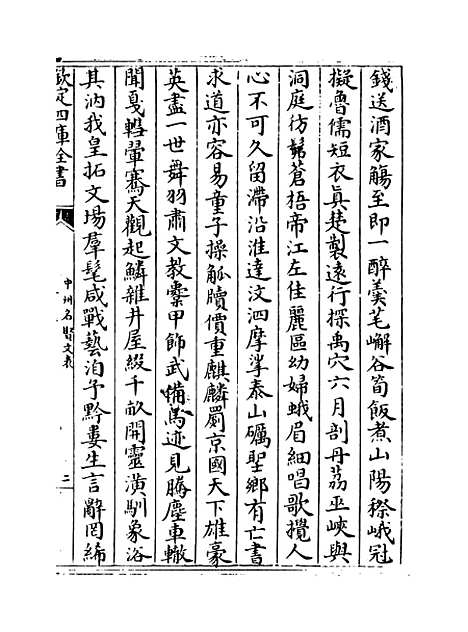 錢送酒家觴至即一醉羹芼嶰谷筍飯煮山陽稌峨冠
擬魯儒短衣真楚製遠行探禹穴六月剖丹荔巫峽與
洞庭彷彿蒼梧帝江左佳麗區幼婦蛾眉細唱歌攪人
心不可久留滯沿淮達汶泗摩挲泰山礪聖鄉有亡書
求道亦容易童子操觚牘價重麒麟罽京國天下雄豪
英盡一世舞羽肅文教櫜甲飾武備馬迹見騰塵車轍
聞戛轊翬騫天觀起鱗雜井屋綴千畝開靈潢馴象浴
其汭我皇拓文場羣髦咸戰藝洎予黔婁生言辭罔絺
欽定四庫全書
中州名賢文表
三